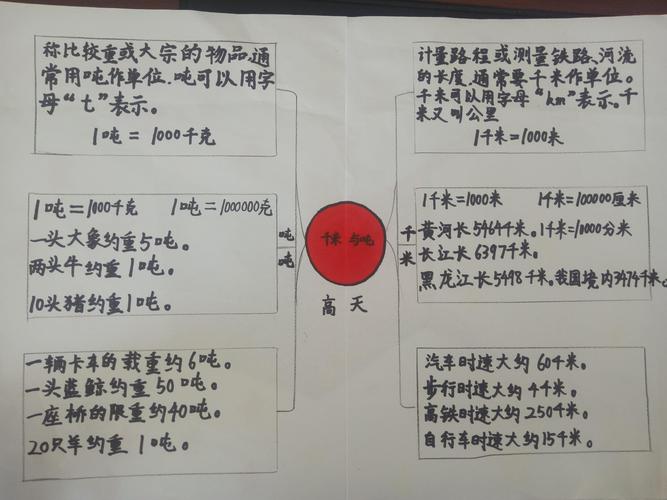 称比较重或大宗的物品,通
常用吨作单位.吨可以用字
母“t”表示。
1吨=1000千克
1吨=1000千克 1吨=1000000克
一头大象约重5吨。
两头牛约重1吨。
10头猪约重1吨。
一辆卡车的载重约6吨。
一头蓝鲸约重50吨。
一座桥的限重约40吨。
20只羊约重1吨。
吨
吨
千米与吨
高天
千
米
计量路程或测量铁路、河流
的长度,通常要千米作单位。
千米可以用字母“km”表示。千
米又叫公里
1千米=1000米
1千米=1000米 1千米=100000厘米
黄河长5464千米。1千米=10000分米
长江长6397千米。
黑龙江长5498千米,我国境内3474千米。
汽车时速大约60千米。
步行时速大约4千米。
高铁时速大约250千米。
自行车时速大约15千米。